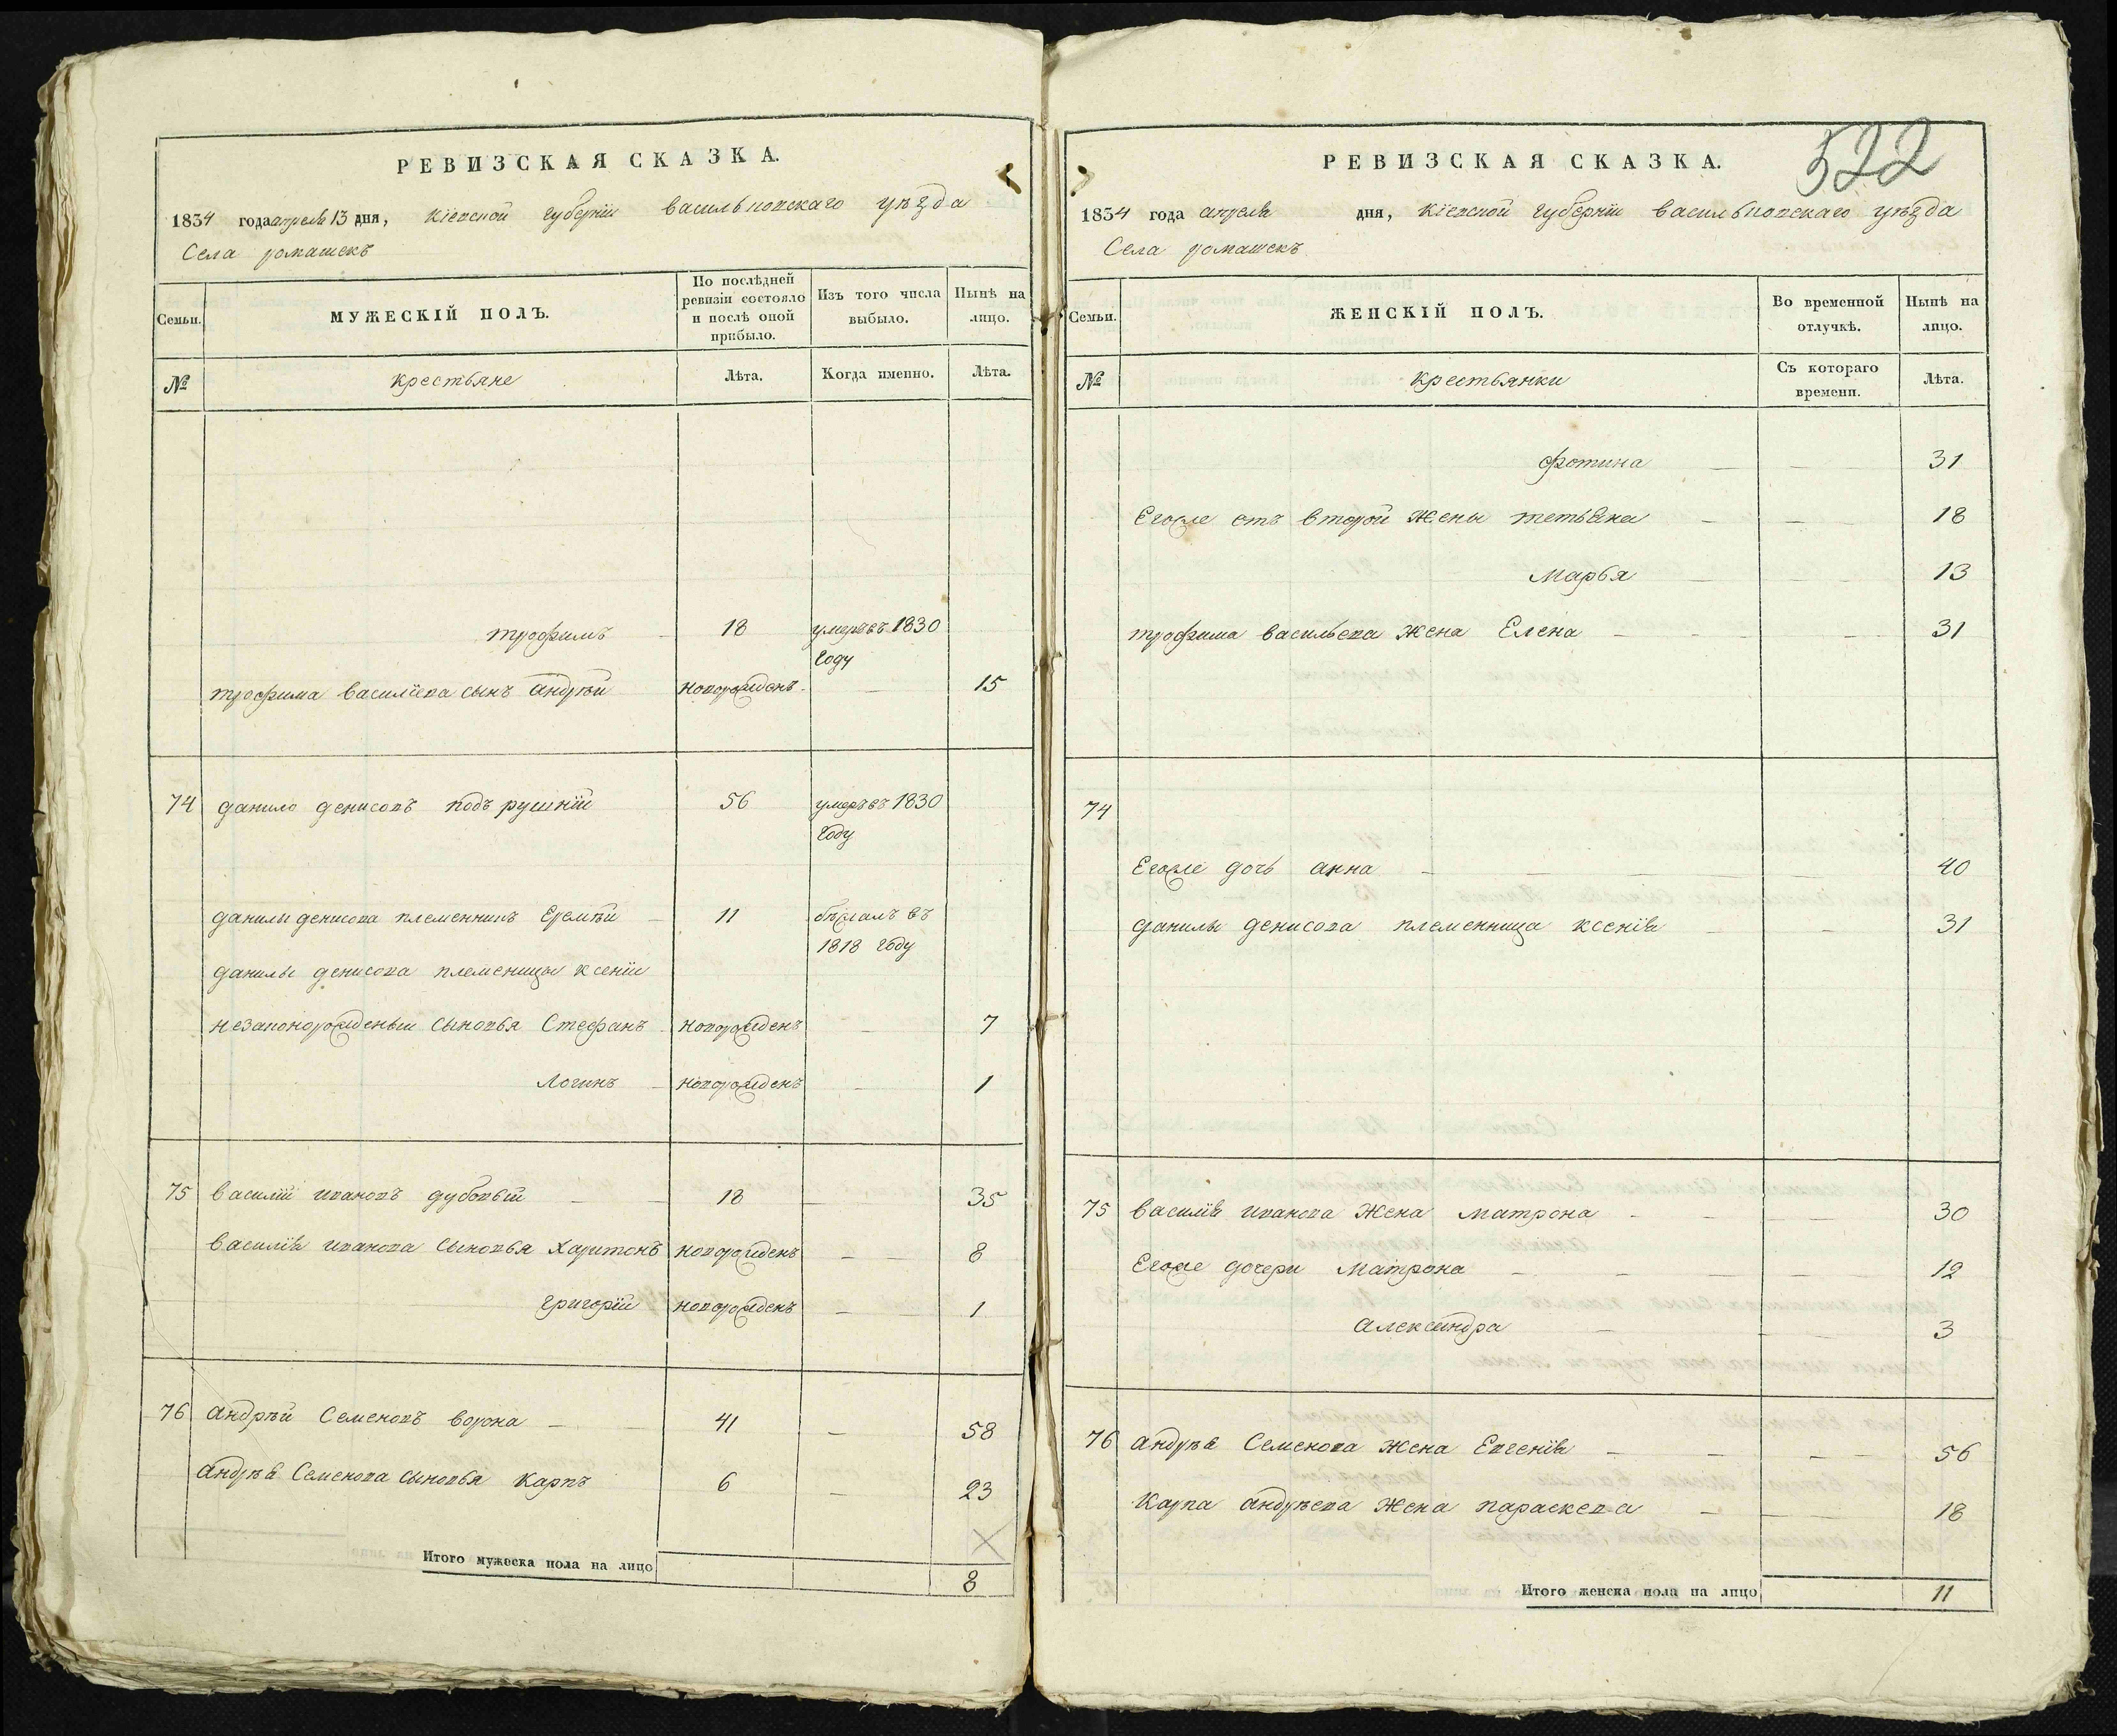 РЕВИЗСКАЯ СКАЗКА.
1834 года апреля 13 дня, Кіевской губерніи васильковскаго уѣзда
Села ромашекъ
Семьи.
МУЖЕСКІЙ ПОЛЪ.
По послѣдней ревизіи состояло и послѣ оной прибыло.
Изъ того числа выбыло.
Нынѣ на лицо.
№
крестьяне
Лѣта.
Когда именно.
Лѣта.
трофимъ 18 умеръ въ 1830 году
трофима васильева сынъ андрѣй новорожденъ 15
74 данило денисовъ подъ рушнїй 56 умеръ въ 1830 году
данилы денисова племенникъ Еремѣй 11 бѣжалъ въ 1818 году
данилы денисова племеницы ксеніи
незаконорожденыи сыновья Стефанъ новорожденъ 7
Логинъ новорожденъ 1
75 василій ивановъ дубовый 18 35
василія иванова сыновья Харитонъ новорожденъ 8
григорій новорожденъ 1
76 андрѣй Семеновъ ворона 41 58
андрѣя Семенова сыновья Карпъ 6 23
Итого мужеска пола на лицо 8
522
РЕВИЗСКАЯ СКАЗКА.
1834 года апреля дня, Кіевской губерніи васильковскаго уѣзда
Села ромашекъ
Семьи.
ЖЕНСКІЙ ПОЛЪ.
Во временной отлучкѣ.
Нынѣ на лицо.
№
крестьянки
Съ котораго времени.
Лѣта.
фотина 31
Егоже отъ второй жены тетьяна 18
марья 13
трофима васильева жена Елена 31
74
Егоже дочь анна 40
данилы денисова племенница ксенія 31
75 василія иванова жена матрона 30
Егоже дочери матрона 12
александра 3
76 андрѣя Семенова жена Евгенія 56
Карпа андрѣева жена параскева 18
Итого женска пола на лицо 11